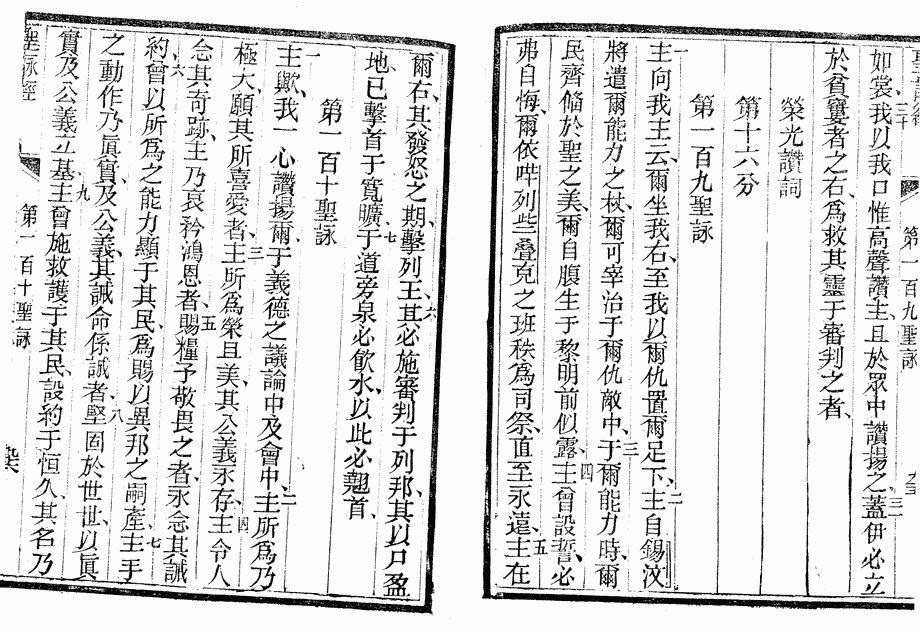 如裳我以我口惟高聲讚主且於眾中讚揚之蓋伊必立
於貧窶者之右爲救其靈于審判之者
榮光讚詞
第十六分
第一百九聖詠
一主向我主云爾坐我右至我以爾仇置爾足下二主自錫汶
將遣爾能力之杖爾可宰治于爾仇敵中三于爾能力時爾
民齊備於聖之美爾自腹生于黎明前似露四主曾設誓必
弗自悔爾依哶列些疊克之班秩爲司祭直至永遠五主在
第一百九聖詠
爾右其發怒之期擊列王六其必施審判于列邦其以口盈
地已擊首于寬曠七于道旁泉必飲水以此必翹首
第一百十聖詠
一主歟我一心讚揚爾于義德之議論中及會中二主所爲乃
極大願其所喜愛者三主所爲榮且美其公義永存四主令人
念其奇跡主乃哀矜鴻恩者五賜糧予敬畏之者永念其誡
六約會以所爲之能力顯于其民爲賜以異邦之嗣產七主手
之動作乃眞實及公義其誠命係誠者八堅固於世世以眞
實及公義立基九主曾施救護于其民設約于恒久其名乃
聖詠經
第一百十聖詠